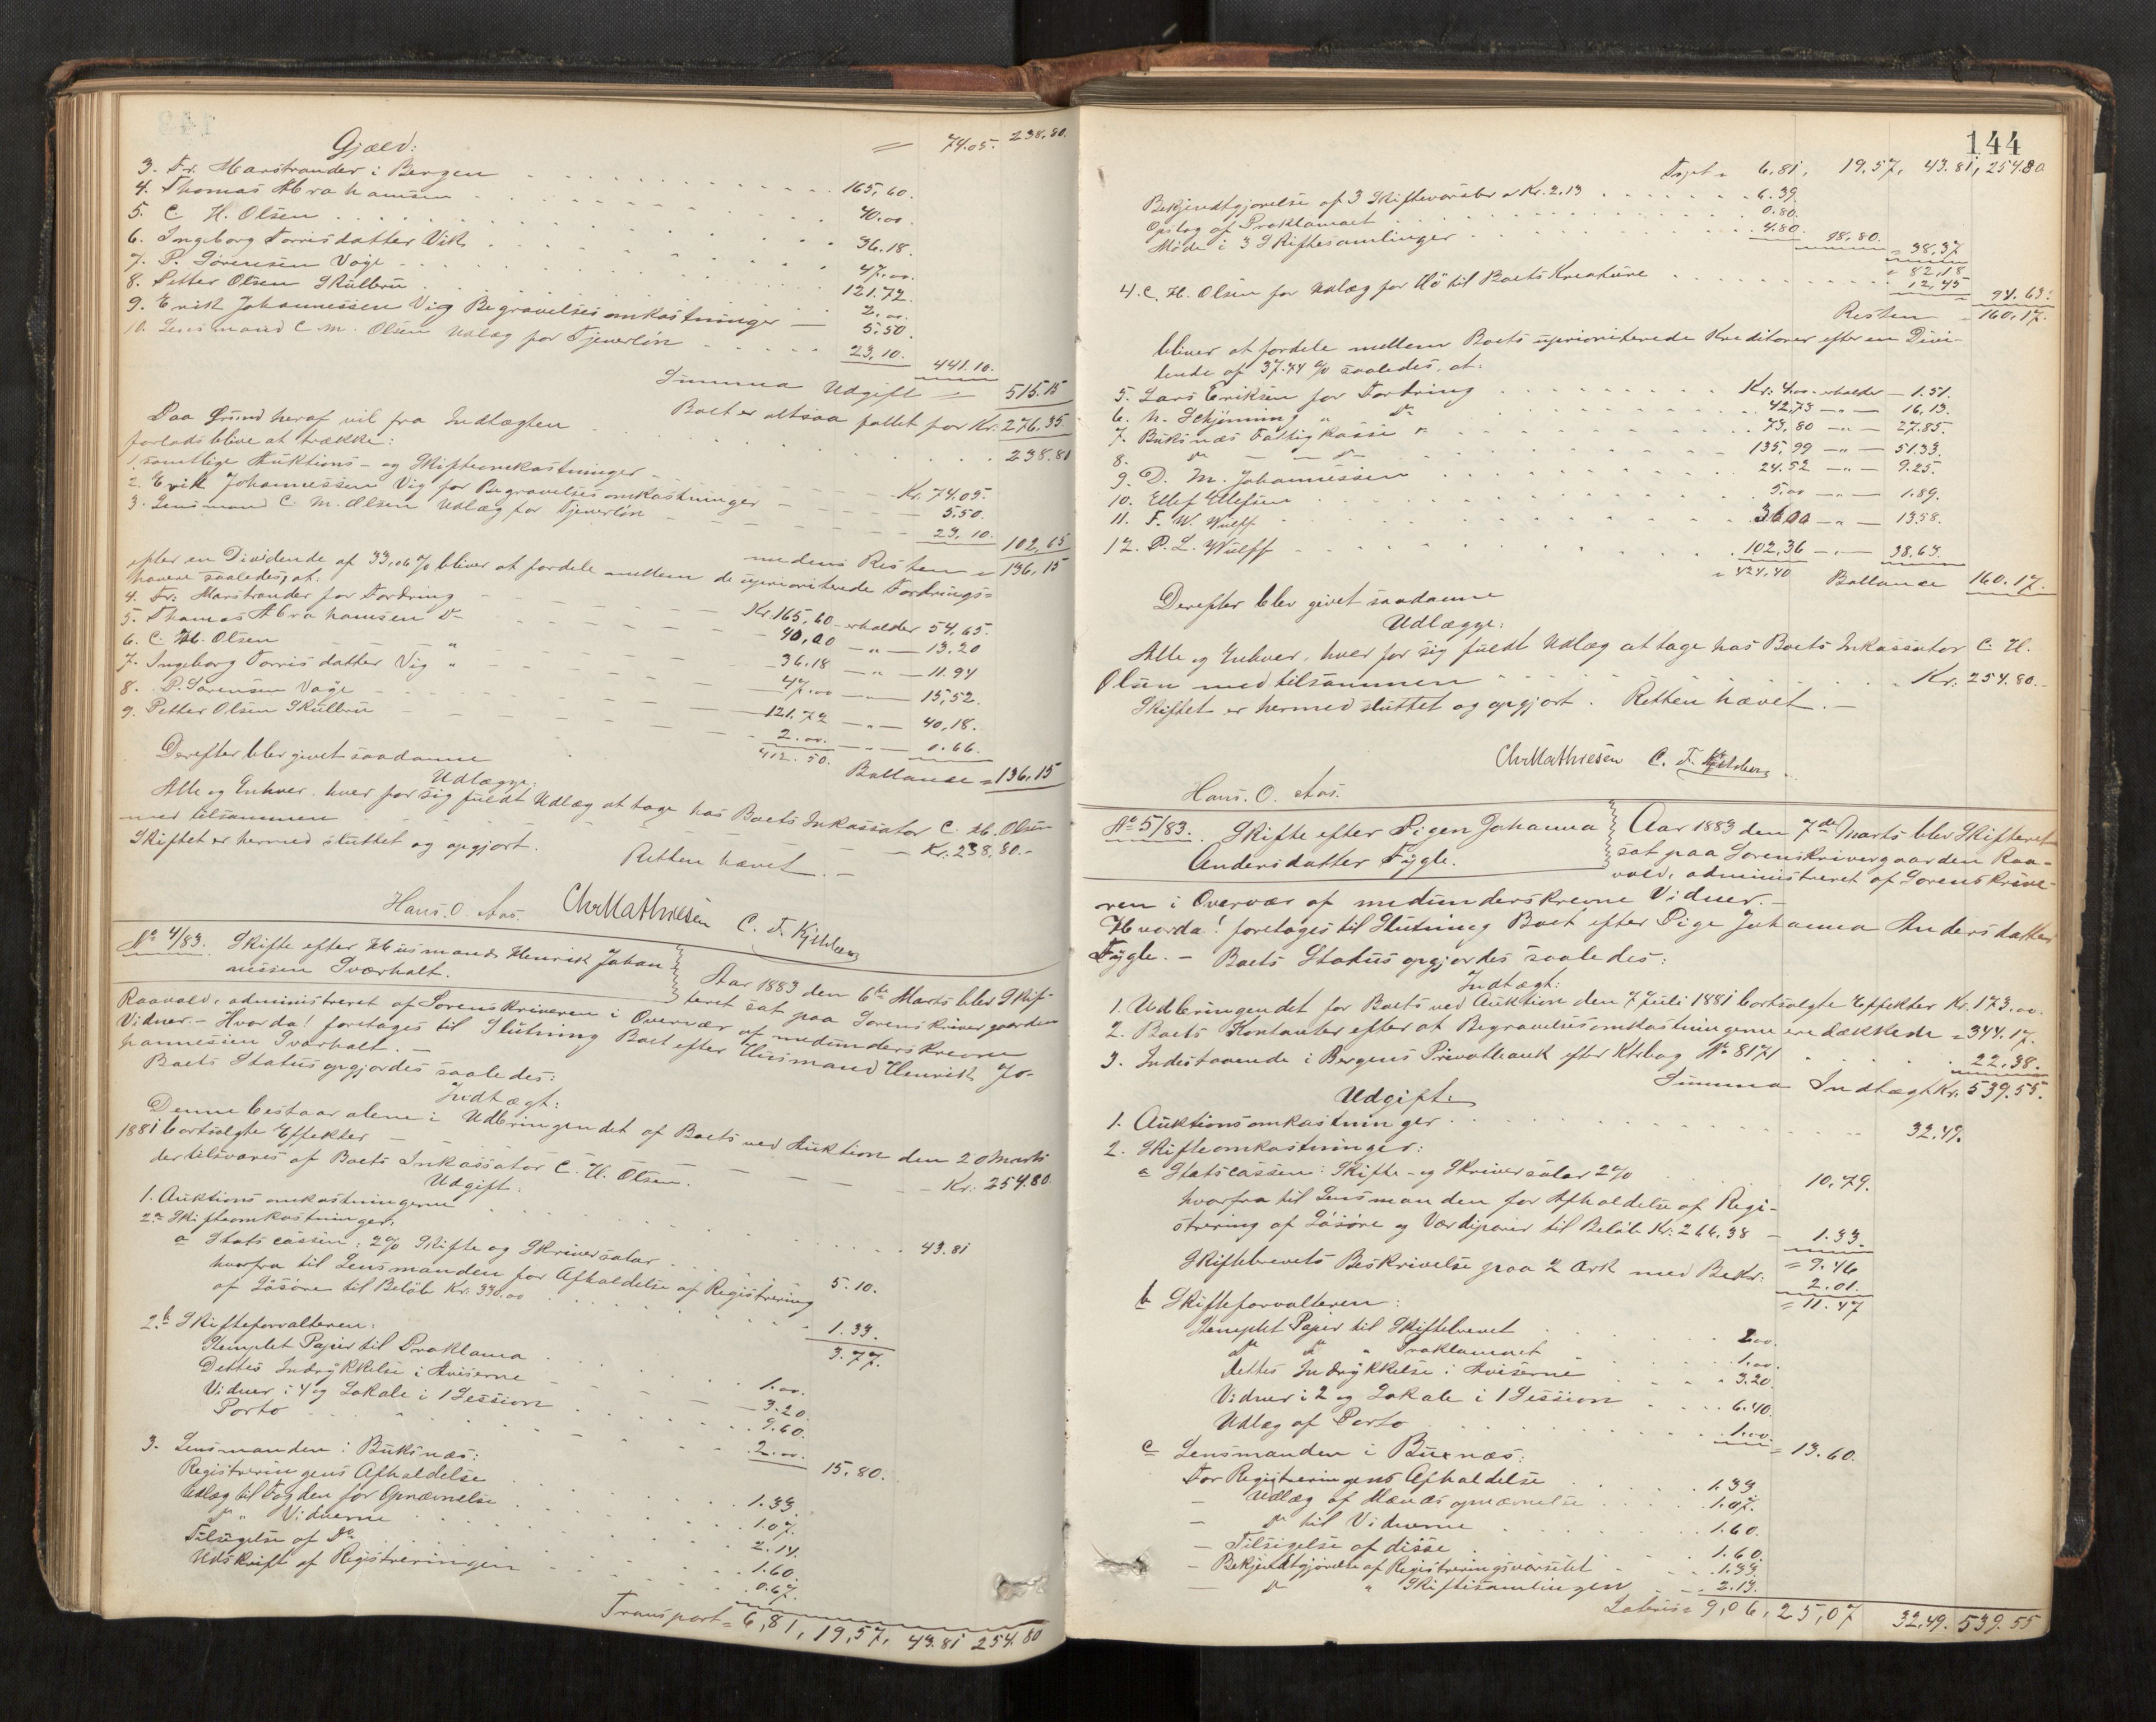 Gjæld: = 74.05. 238.80.
3. Fr. Marstrander i Bergen 165.60.
4. Thomas Abrahamsen 40.00.
5. C. H. Olsen 36.18.
6. Ingeborg Torrisdatter Vik 47.00.
7. P. Sørensen Vaage 121.72.
8. Petter Olsen Skulbru 2.00.
9. Erik Johannessen Vig Begravelsesomkostninger — 5.50.
10. Lensmand C. M. Olsen Udlæg for Tjenerløn 23.10. 441.10.
Summa Udgift = 515.15
Boet er altsaa fallit for Kr. 276.35.
Paa Grund heraf vil fra Indtægten 238.80
forlods blive at trække:
1. samtlige Auktions- og Skifteomkostninger Kr. 74.05.
2. Erik Johannessen Vig for Begravelsesomkostninger 5.50.
3. Lensmand C. M. Olsen Udlæg for Tjenerløn 23.10. 102.65
medens Resten = 136.15
efter en Dividende af 33,06 % bliver at fordele mellem de uprioriterede Fordrings-
havere saaledes, at:
4. Fr. Marstrander for Fordring Kr. 165.60 erholder 54.65.
5. Thomas Abrahamsen Do 40.00 — " — 13.20
6. C. H. Olsen " 36.18 — " — 11.94
7. Ingeborg Torrisdatter Vig " 47.00 — " — 15.52.
8. P. Sørensen Vaage 121.72 — " — 40.18.
9. Petter Olsen Skulbru 2.00. — " — 0.66.
412.50. Ballance = 136.15
Derefter blev givet saadanne
Udlægge:
Alle og Enhver, hver for sig fuldt Udlæg at tage hos Boets Inkassator C. H. Olsen
med tilsammen Kr. 238.80.-
Skiftet er hermed sluttet og opgjort. Retten hævet. —
Hans. O. Aas. Chr Mathiesen C. F. Kjelsberg
No 4/83. Skifte efter Husmand Henrik Johan-
nissen Sværholt.
Aar 1883 den 6te Marts blev Skif-
teret sat paa Sorenskrivergaarden
Raavold, administreret af Sorenskriveren i Overvær af medunderskrevne
Vidner. — Hvorda! foretoges til Slutning Boet efter Husmand Henrik Jo-
hannessen Sværholt. —
Boets Status opgjordes saaledes:
Indtægt:
Denne bestaar alene i Udbringendet af Boets ved Auktion den 20 Marts
1881 bortsolgte Effekter Kr. 254.80
der tilsvares af Boets Inkassator C. H. Olsen.
Udgift:
1. Auktionsomkostningerne 43.81
2. Skifteomkostninger,
a Statscassen: 2 % Skifte og Skriversalar 5.10.
hvorfra til Lensmanden for Afholdelse af Registrering
af Løsøre til Beløb Kr. 338.00 1.33.
3.77.
2.b Skifteforvalteren:
Stemplet Papir til Proklama 1.00.
Dettes Indrykkelse i Aviserne 3.20.
Vidner i 4 og Lokale i 1 Session 9.60.
Porto 2.00. 15.80.
3. Lensmanden i Buksnæs:
Registreringens Afholdelse 1.33.
Udlæg til Fogden for Opnævnelse 1.07.
Do " Vidnerne 2.14.
Tilsigelse af Do 1.60.
Udskrift af Registreringen 0.67.
Transport = 6,81, 19,57, 43.81 254.80
144
Trspt = 6.81, 19.57, 43.81, 254.80
Bekjendtgjørelse af 3 Skiftevarsler a Kr. 2.13 6.39.
Opslag af Proklamaet 0.80.
Møde i 3 Skiftesamlinger 4.80. 18.80.
= 38.37
= 82.18
4. C. H. Olsen for Udlæg for Hø til Boets Kreature 12.45 = 94.63.
Resten = 160.17.
bliver at fordele mellem Boets uprioriterede Kreditorer efter en Divi-
dende af 37.74 % saaledes, at:
5. Lars Eriksen for Fordring Kr. 4.00. erholder — 1.51.
6. N. Schjønning " Do 42.73 — " — 16.13.
7. Buksnæs Fattigkasse " 73.80 — " — 27.85.
8. Do — — Do 135.99 — " — 51.33.
9. D. M. Johannessen 24.52 — " — 9.25.
10. Ellef Ellefsen 5.00 — " — 1.89.
11. F. W. Wulff 36.00 — " — 13.58.
12. P. L. Wulff 102.36 — " — 38.63.
= 424.40 Ballance 160.17.
Derefter blev givet saadanne
Udlægge:
Alle og Enhver, hver for sig fuldt Udlæg at tage hos Boets Inkassator C. H.
Olsen med tilsammen Kr. 254.80.-
Skiftet er hermed sluttet og opgjort. Retten hævet. —
Chr Mathiesen C. F. Kjelsberg
Hans. O. Aas.
No 5/83. Skifte efter Pigen Johanna
Andersdatter Fygle.
Aar 1883 den 7de Marts blev Skifteret
sat paa Sorenskrivergaarden Raa-
vold, administreret af Sorenskrive-
ren i Overvær af medunderskrevne Vidner. —
Hvorda! foretoges til Slutning Boet efter Pige Johanna Andersdatter
Fygle. — Boets Status opgjordes saaledes:
Indtægt:
1. Udbringendet for Boets ved Auktion den 7 Juli 1881 bortsolgte Effekter Kr. 173.00.
2. Boets Kontanter efter at Begravelsesomkostningerne ere dækkede = 344.17.
3. Indestaaende i Bergens Privatbank efter Ktrbog No 8171 22.38.
Summa Indtægt Kr. 539.55.
Udgift:
1. Auktionsomkostninger 32.49.
2. Skifteomkostninger:
a Statscassen: Skifte- og Skriversalar 2 % 10.79.
hvorfra til Lensmanden for Afholdelse af Regi-
strering af Løsøre og Værdipapirer til Beløb Kr. 266.38 — 1.33.
= 9.46
Skiftebrevets Beskrivelse paa 2 Ark med Bekr: 2.01.
= 11.47
b Skifteforvalteren:
Stemplet Papir til Skiftebrevet 2.00.
Do Do " Proklamaet 1.00.
dettes Indrykkelse i Aviserne 3.20.
Vidner i 2 og Lokale i 1 Session 6.40.
Udlæg af Porto 1.00. = 13.60.
c Lensmanden i Buxnæs:
For Registreringens Afholdelse 1.33
— Udlæg af Mænds opnævnelse 1.07.
— Do til Vidnerne 1.60.
— Tilsigelse af disse 1.60.
— Bekjendtgjørelse af Registreringsvarselet 1.33.
— Do " Skiftesamlingen 2.13.
Lateris = 9,06, 25,07 32.49. 539.55